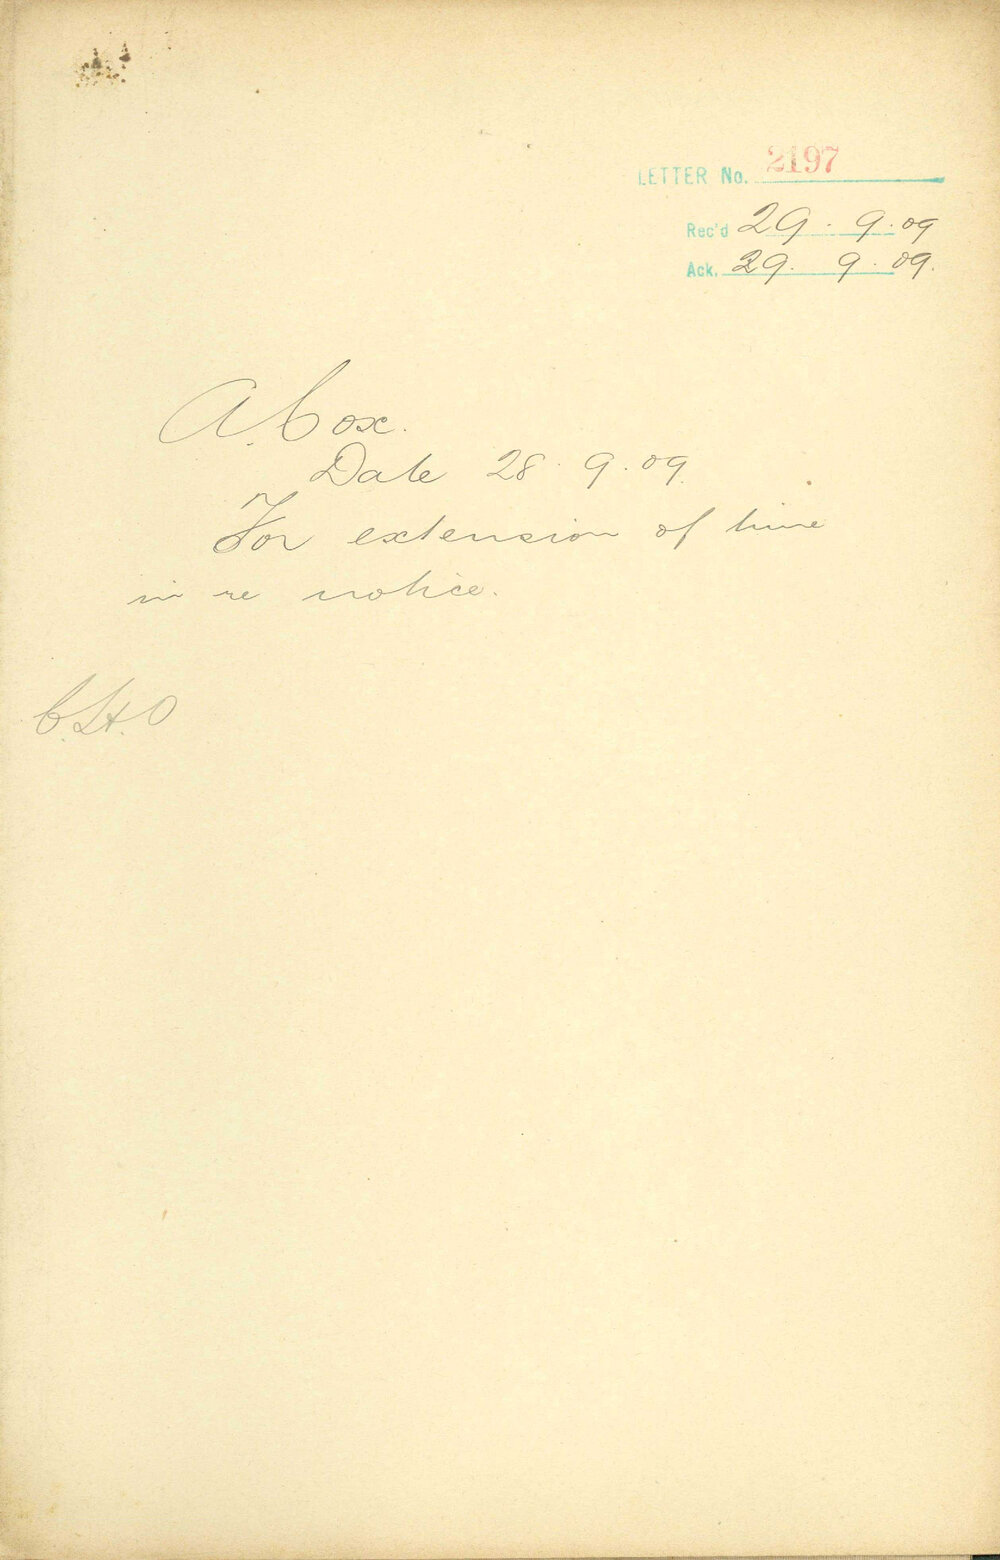 LETTER No. 2197
Rec'd 29. 9. 09
Ack. 29. 9. 09.
A. Cox.
Date 28. 9. 09.
For extension of time
in re notice.
C.H.O